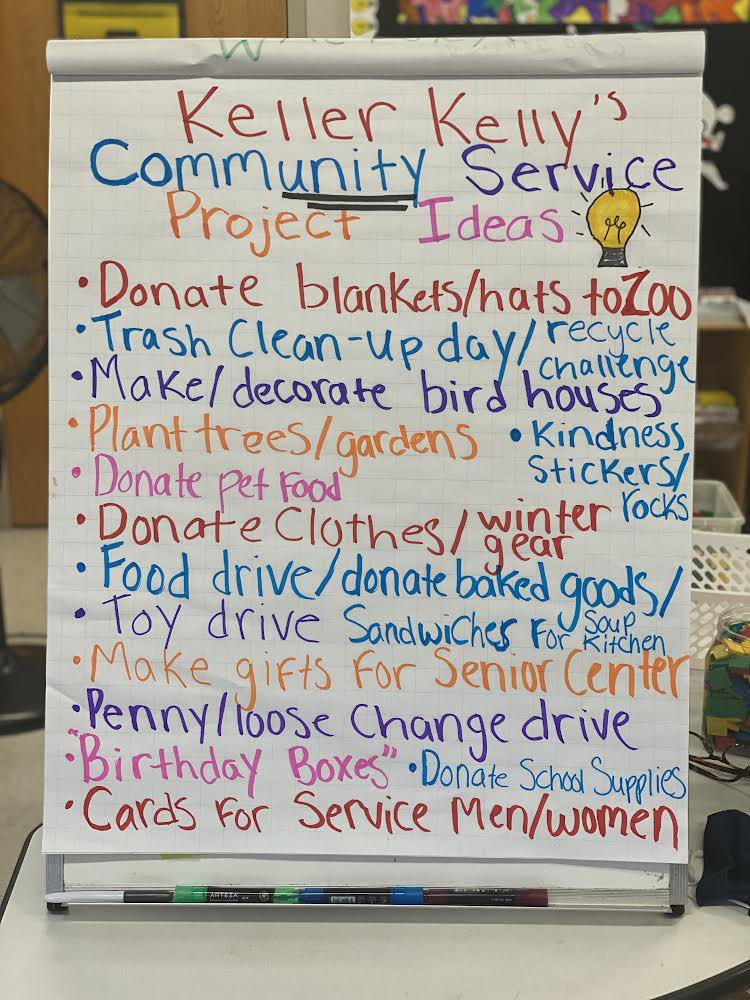 Keller Kelly's
Community Service
Project Ideas
• Donate blankets/hats to Zoo
• Trash Clean-up day/recycle challenge
• Make/decorate bird houses
• Plant trees/gardens
• Kindness
Stickers/
rocks
• Donate pet Food
• Donate Clothes/winter gear
• Food drive/donate baked goods/
Sandwiches For Soup Kitchen
• Toy drive
• Make gifts For Senior Center
• Penny/loose change drive
• "Birthday Boxes"
• Donate School Supplies
• Cards For Service Men/women
ARTEZA